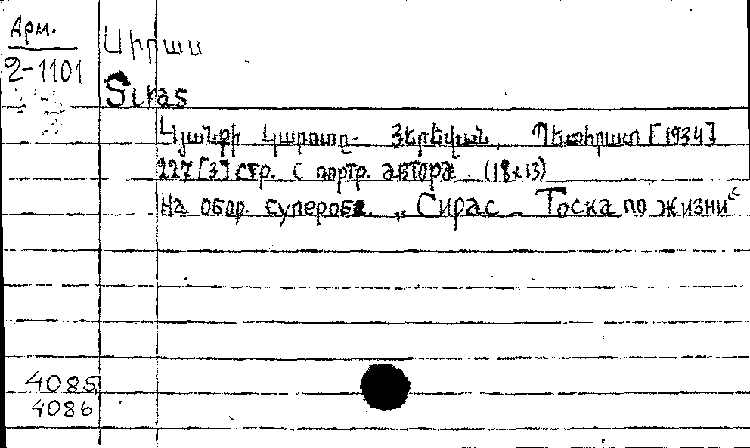 Арм.
2-1101
Սիրաս
Siras
Կյանքի կարոտը- Յերեվան, Պետհրատ [1934]
227 [3] стр. с портр. автора. (18x13)
На обор. суперобл. „Сирас - Тоска по жизни“
4085
4086